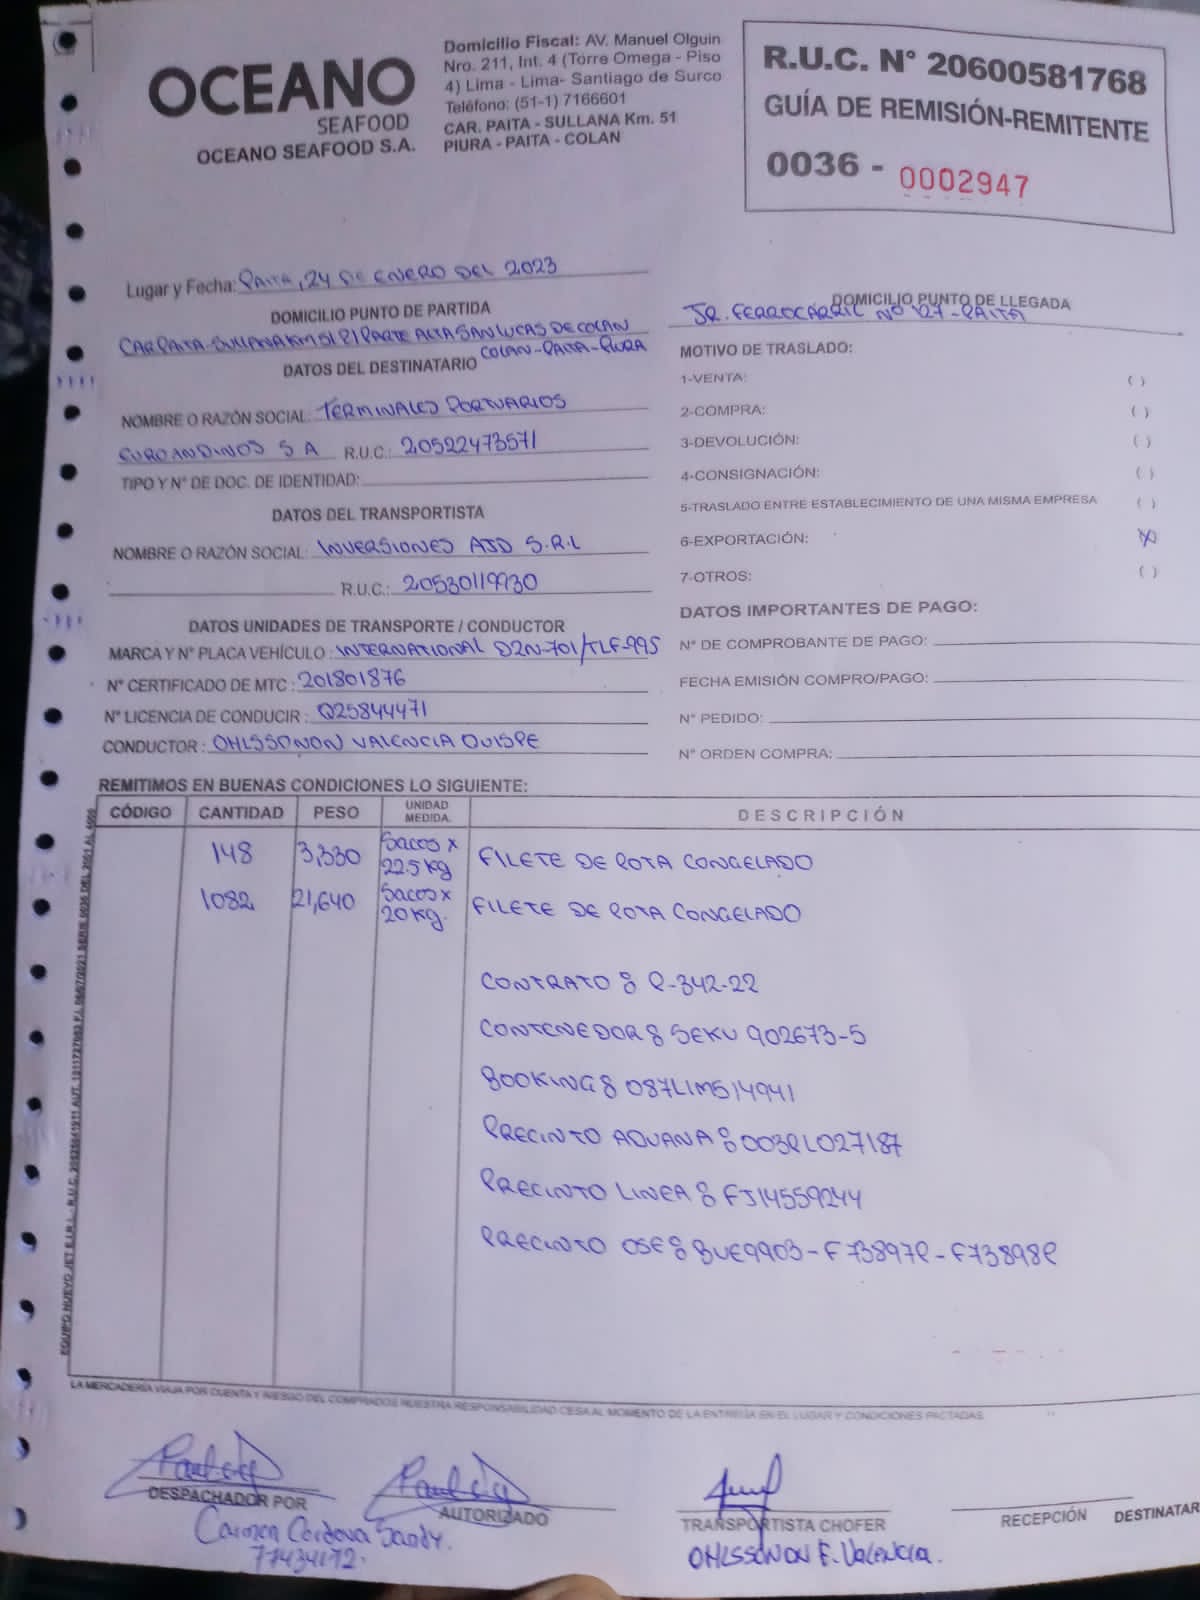 OCEANO
SEAFOOD
OCEANO SEAFOOD S.A.
Domicilio Fiscal: AV. Manuel Olguin
Nro. 211, Int. 4 (Torre Omega - Piso
4) Lima - Lima- Santiago de Surco
Teléfono: (51-1) 7166601
CAR. PAITA - SULLANA Km. 51
PIURA - PAITA - COLAN
R.U.C. N° 20600581768
GUÍA DE REMISIÓN-REMITENTE
0036 - 0002947
Lugar y Fecha: PAITA, 24 DE ENERO DEL 2023
DOMICILIO PUNTO DE PARTIDA
CAR PAITA-SULLANA KM 51 P/PARTE ALTA SAN LUCAS DE COLAN
COLAN-PAITA-PIURA
DOMICILIO PUNTO DE LLEGADA
JR. FERROCARRIL NO 127-PAITA
DATOS DEL DESTINATARIO
NOMBRE O RAZÓN SOCIAL: TERMINALES PORTUARIOS
EUROANDINOS S A R.U.C.: 20522473571
TIPO Y N° DE DOC. DE IDENTIDAD:
DATOS DEL TRANSPORTISTA
NOMBRE O RAZÓN SOCIAL: INVERSIONES AJD S.R.L
R.U.C.: 20530119930
DATOS UNIDADES DE TRANSPORTE / CONDUCTOR
MARCA Y N° PLACA VEHÍCULO: INTERNATIONAL D2N-701/TLF-995
N° CERTIFICADO DE MTC: 201801876
N° LICENCIA DE CONDUCIR: Q25844471
CONDUCTOR: OHLSSONON VALENCIA QUISPE
MOTIVO DE TRASLADO:
1-VENTA: ( )
2-COMPRA: ( )
3-DEVOLUCIÓN: ( )
4-CONSIGNACIÓN: ( )
5-TRASLADO ENTRE ESTABLECIMIENTO DE UNA MISMA EMPRESA ( )
6-EXPORTACIÓN: (X)
7-OTROS: ( )
DATOS IMPORTANTES DE PAGO:
N° DE COMPROBANTE DE PAGO:
FECHA EMISIÓN COMPRO/PAGO:
N° PEDIDO:
N° ORDEN COMPRA:
REMITIMOS EN BUENAS CONDICIONES LO SIGUIENTE:
CÓDIGO CANTIDAD PESO UNIDAD MEDIDA. DESCRIPCIÓN
148 3,330 Sacos x 22.5 Kg FILETE DE POTA CONGELADO
1082 21,640 Sacos x 20 Kg. FILETE DE POTA CONGELADO
CONTRATO: P-342-22
CONTENEDOR: SEKU 902673-5
BOOKING: 087LIM514941
PRECINTO ADUANA: 003PL027187
PRECINTO LINEA: FJ14559244
PRECINTO OSE: BUE9903-F73897P-F73898P
LA MERCADERÍA VIAJA POR CUENTA Y RIESGO DEL COMPRADOR NUESTRA RESPONSABILIDAD CESA AL MOMENTO DE LA ENTREGA EN EL LUGAR Y CONDICIONES PACTADAS
DESPACHADOR POR
Carmen Cordova Sandy.
77434172.
AUTORIZADO
TRANSPORTISTA CHOFER
OHLSSONON F. VALENCIA.
RECEPCIÓN DESTINATAR